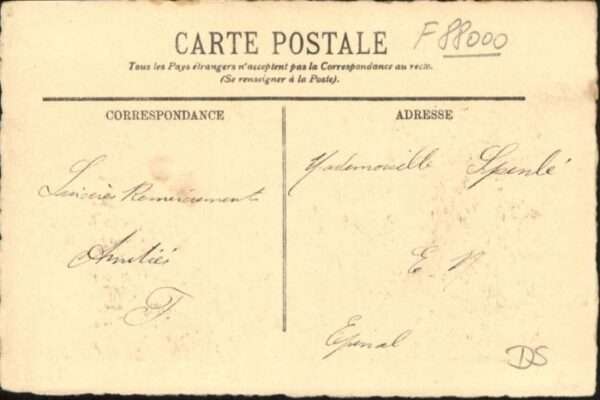 CARTE POSTALE
F 88000
Tous les Pays étrangers n'acceptent pas la Correspondance au recto.
(Se renseigner à la Poste).
CORRESPONDANCE
Sincères Remerciements
Amitiés
F.
ADRESSE
Mademoiselle Spenlé
E. V.
Epinal
DS